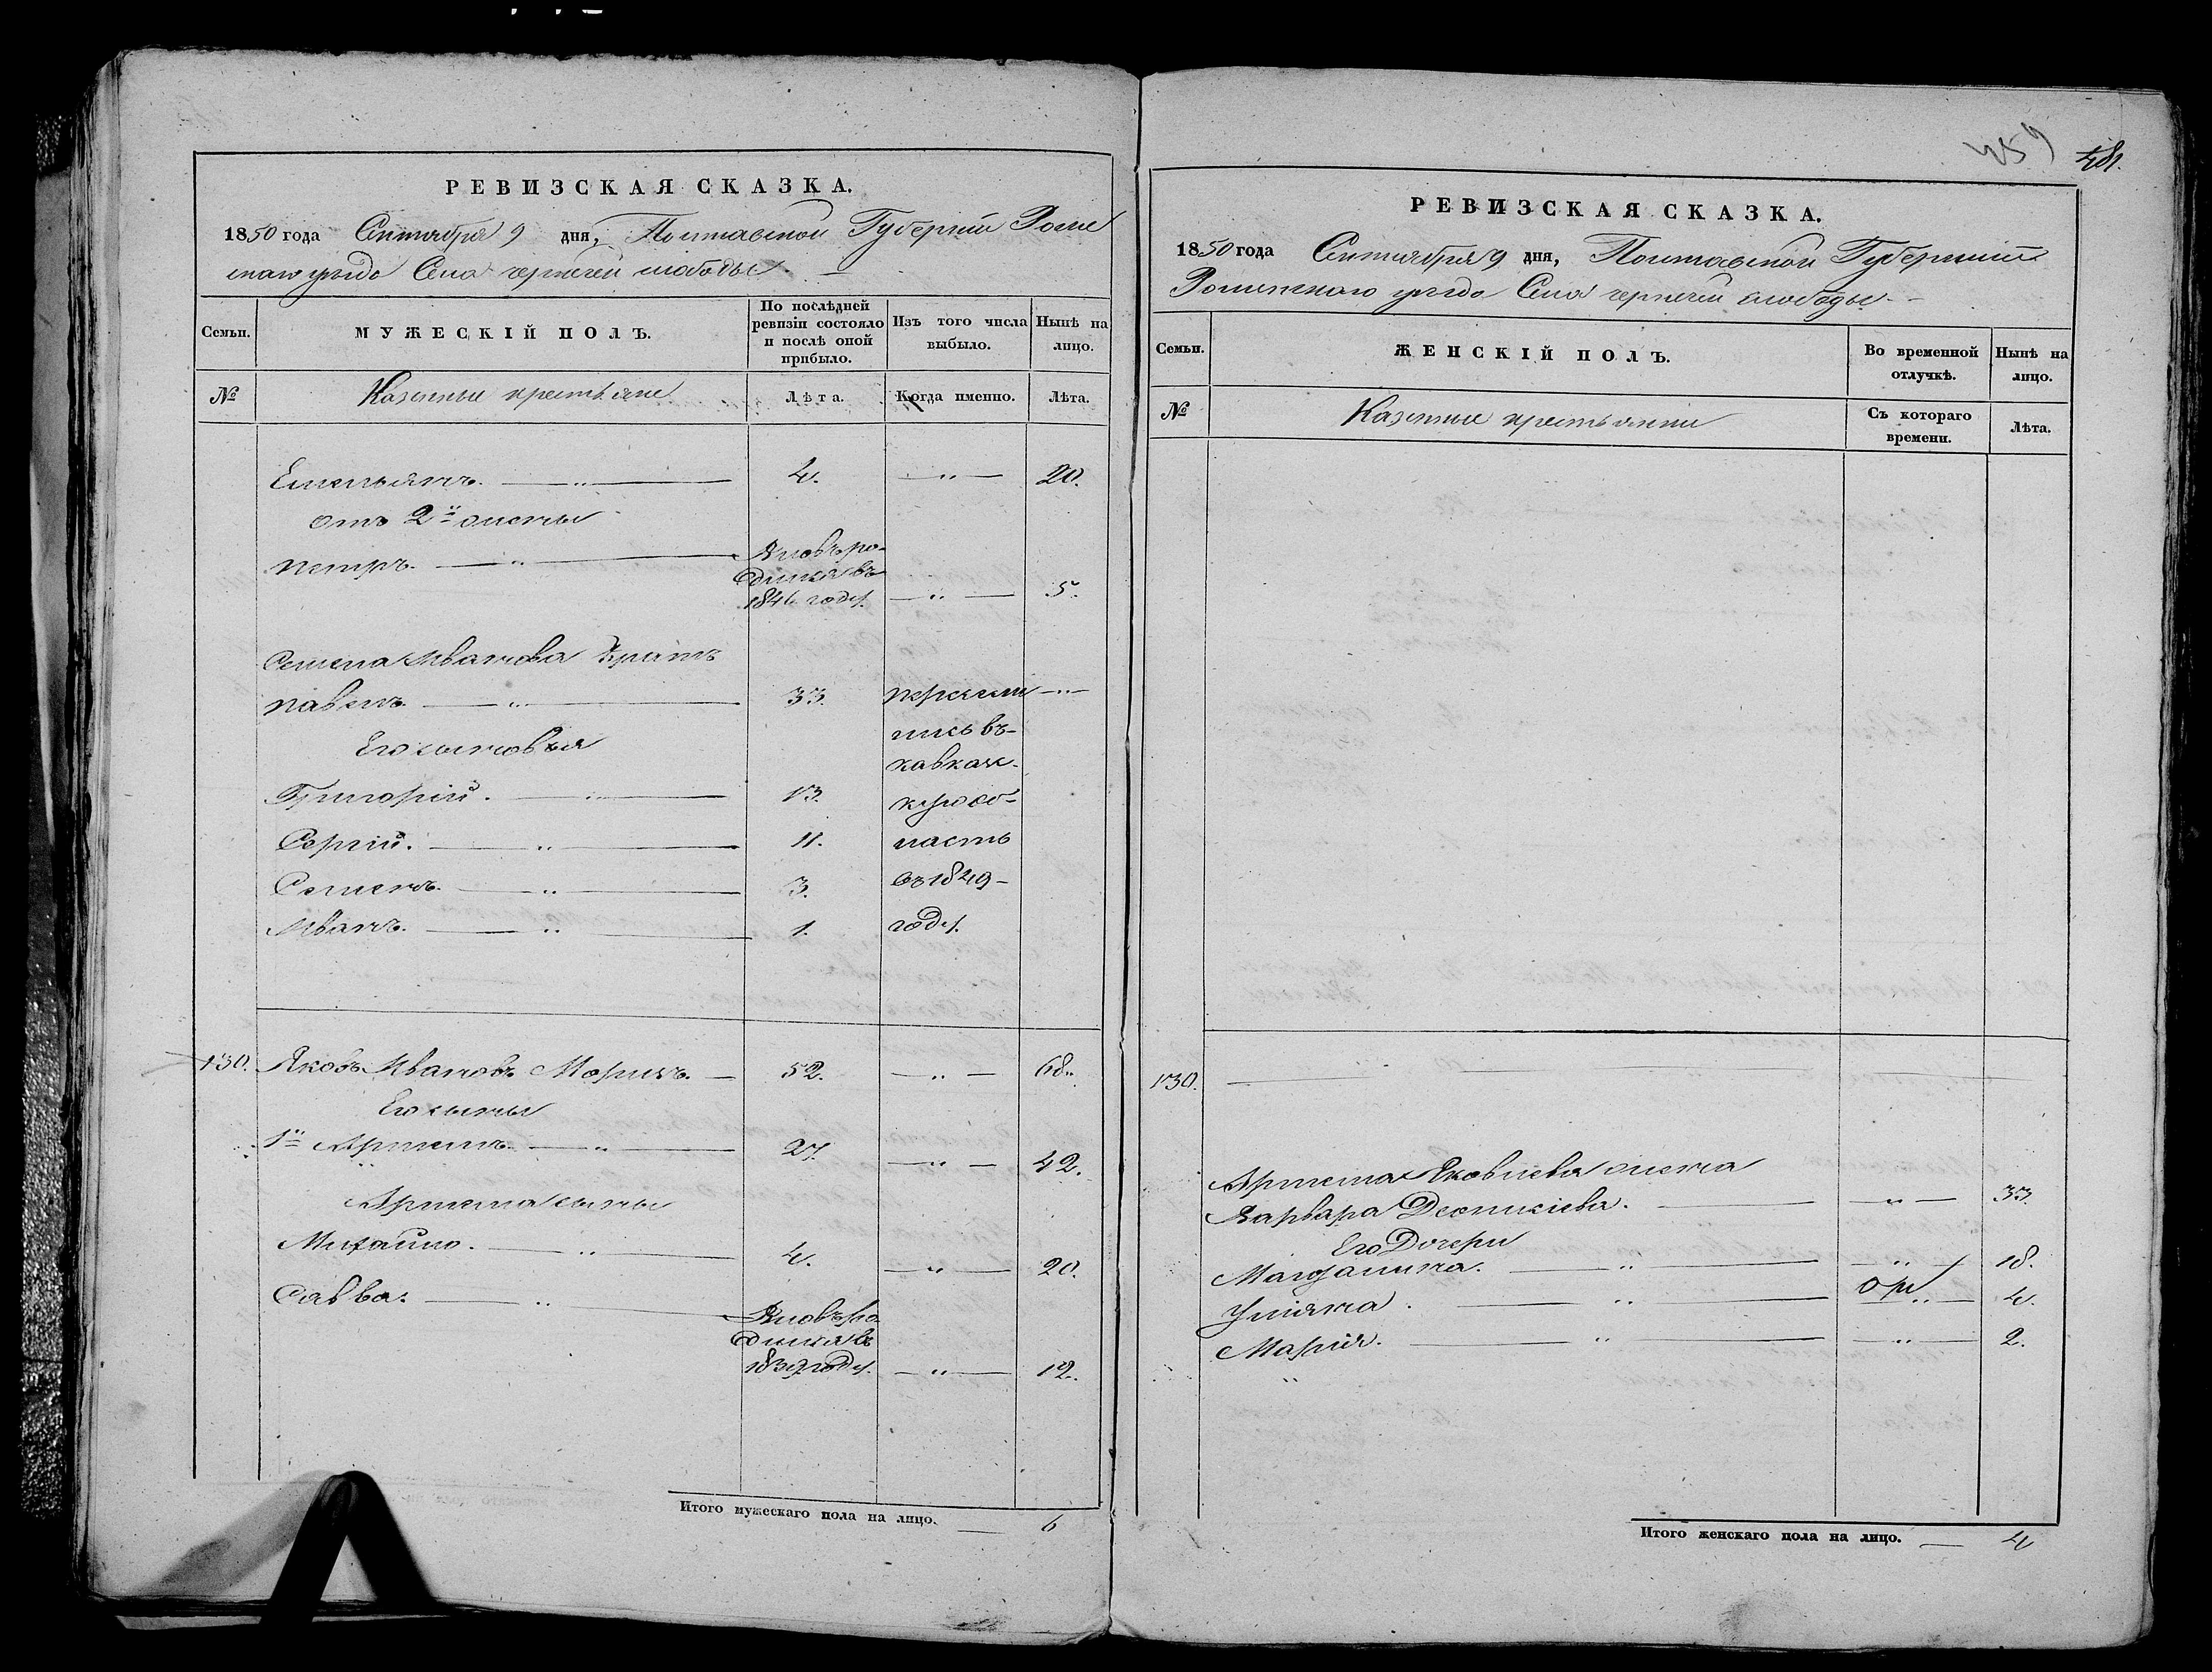 РЕВИЗСКАЯ СКАЗКА.
1850 года Сентября 9 дня, Полтавской Губернии Роме
нскаго уезда Села чернечей слободы
Семьи.
МУЖЕСКІЙ ПОЛЪ.
По послѣдней
ревизіи состояло
и послѣ оной
прибыло.
Изъ того числа
выбыло.
Нынѣ на
лицо.
№
Казенные крестьяне
Лѣта.
Когда именно.
Лѣта.
Емельянъ. — " — 4. — " — 20.
отъ 2й жены
Петръ. — " — Вновь ро-
дился въ
1846 году. — " — 5.
Семена Иванова братъ
Павелъ. — " — 33. пересели — " —
лись въ
Григорій. — " — 13.
Его сыновья
кавказс-
кую об-
Сергій. — " — 11. ласть
Семенъ. — " — 3. въ 1849 –
Иванъ. — " — 1. году.
130. Яковъ Ивановъ Моринъ. — 52. — " — 68.
Его сыны
1й Артемъ. — " — 27. — " — 42.
Артема сыны
Михайло. — " — 4. — " — 20.
Савва. — " — Вновь ро
дился въ
1839 году. — " — 12.
Итого мужескаго пола на лицо. — 6
459
481.
РЕВИЗСКАЯ СКАЗКА.
1850 года Сентября 9 дня, Полтавской Губернии
Роменскаго уезда Села чернечей слободы
Семьи.
ЖЕНСКІЙ ПОЛЪ.
Во временной
отлучкѣ.
Нынѣ на
лицо.
№
Казенные крестьянки
Съ котораго
времени.
Лѣта.
130.
Артема Яковлева жена
Варвара Деонисіева. — " — 33.
Его Дочери
Магдалина. — " — " — 18.
Уліяна. — " — " — 4.
Марія. — " — " — 2.
Итого женскаго пола на лицо. — 4